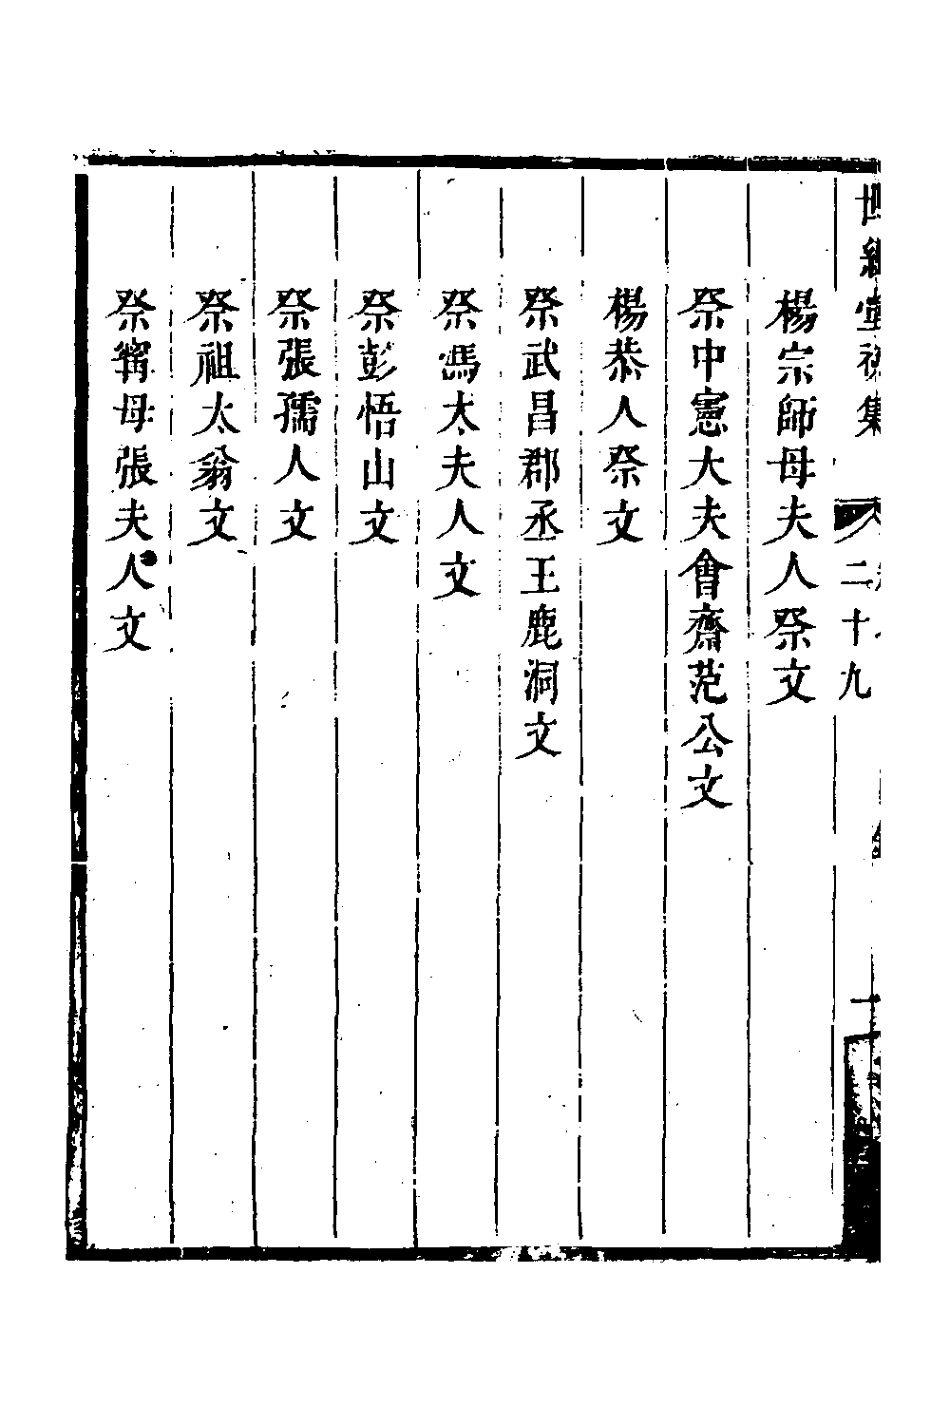 世經堂初集 卷二十九 目錄 一
楊宗師母夫人祭文
祭中憲大夫會齋范公文
楊恭人祭文
祭武昌郡丞王鹿洞文
祭馮太夫人文
祭彭悟山文
祭張孺人文
祭祖太翁文
祭甯母張夫人文